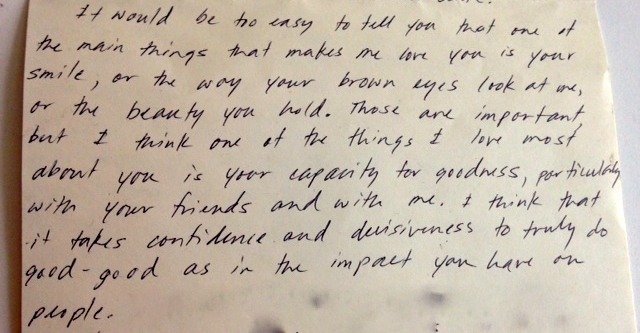 It would be too easy to tell you that one of
the main things that makes me love you is your
smile, or the way your brown eyes look at me,
or the beauty you hold. Those are important,
but I think one of the things I love most
about you is your capacity for goodness, particularly
with your friends and with me. I think that
it takes confidence and decisiveness to truly do
good - good as in the impact you have on
people.